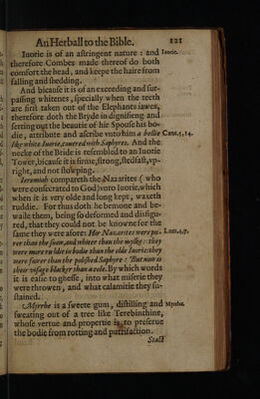 An Herball to the Bible. 121
Iuorie is of an astringent nature : and Iuorie.
therefore Combes made thereof do both
comfort the head, and keepe the haire from
falling and shedding.
And bicause it is of an exceeding and sur-
passing whitenes, specially when the teeth
are first taken out of the Elephants iawes,
therefore doth the Bryde in dignifieng and
setting out the beautie of hir Spouse his bo-
die, attribute and ascribe vnto him a bellie Cant.5,14.
like white Iuorie, couered with Saphyres. And the
necke of the Bride is resembled to an Iuorie
Tower, bicause it is firme, strong, stedfast, vp-
right, and not stowping.
Ieremiah compareth the Nazarites ( who
were consecrated to God) vnto Iuorie, which
when it is very olde and long kept, waxeth
ruddie. For thus doth he bemone and be-
waile them, being so deformed and disfigu-
red, that they could not be knowne for the
same they were afore: Hir Nazarites were pu-
rer than the snow, and whiter than the mylke : they Lam.4,7.
were more ruddie in bodie than the olde Iuorie: they
were fairer than the polished Saphyre : But now is
their visage blacker than a cole. By which words
it is easie to ghesse, into what miserie they
were throwen, and what calamitie they su-
stained.
Myrrhe is a sweete gum, distilling and Myrrhe.
sweating out of a tree like Terebinthine,
whose vertue and propertie is, to preserue
the bodie from rotting and putrifaction.